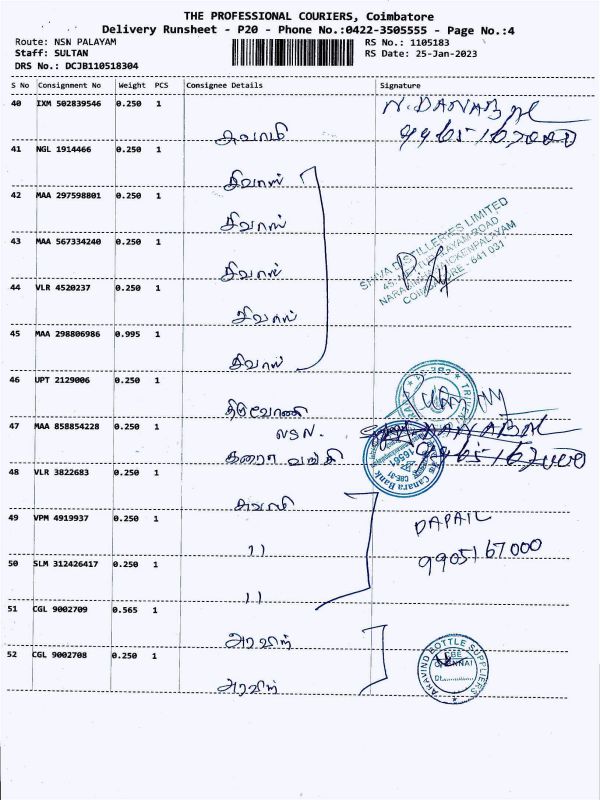 THE PROFESSIONAL COURIERS, Coimbatore
Delivery Runsheet - P20 - Phone No.:0422-3505555 - Page No.:4
Route: NSN PALAYAM RS No.: 1105183
Staff: SULTAN RS Date: 25-Jan-2023
DRS No.: DCJB110518304
S No Consignment No Weight PCS Consignee Details Signature
40 IXM 502839546 0.250 1 N. DANABAL
9965167000
41 NGL 1914466 0.250 1
சிவாஸ்
42 MAA 297598801 0.250 1
சிவாஸ்
SHIVA DISTILLERIES LIMITED
43 MAA 567334240 0.250 1
சிவாஸ்
COIMBATORE - 641 031
44 VLR 4520237 0.250 1
சிவாஸ்
45 MAA 298806986 0.995 1
சிவாஸ்
46 UPT 2129006 0.250 1
திருவோணி
47 MAA 858854228 0.250 1
NSN. DANABAL
கனரா வங்கி 9965167000
Canara Bank
48 VLR 3822683 0.250 1
49 VPM 4919937 0.250 1
11
9905167000
50 SLM 312426417 0.250 1
11
51 CGL 9002709 0.565 1
அரவிந்
52 CGL 9002708 0.250 1
அரவிந்
ARAVIND BOTTLE SUPPLIERS
CBE
CHENNAI
Dt..............